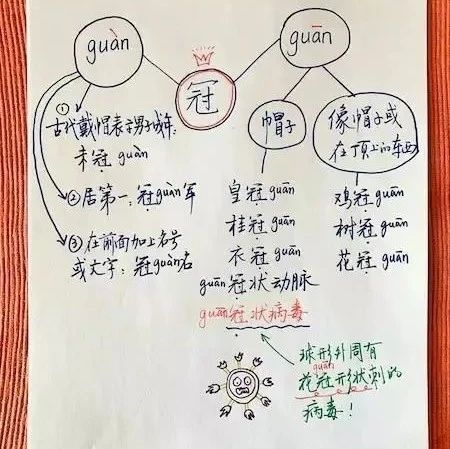 guàn
冠
guān
① 古代戴帽表示男子成年:
未冠 guàn
② 居第一:冠guàn军
③ 在前面加上名号
或文字:冠guàn名
帽子
皇冠 guān
桂冠 guān
衣冠 guān
guān冠状动脉
guān冠状病毒
像帽子或
在顶上的东西
鸡冠 guān
树冠 guān
花冠 guān
球形外周有
guān
花冠形状刺的
病毒!